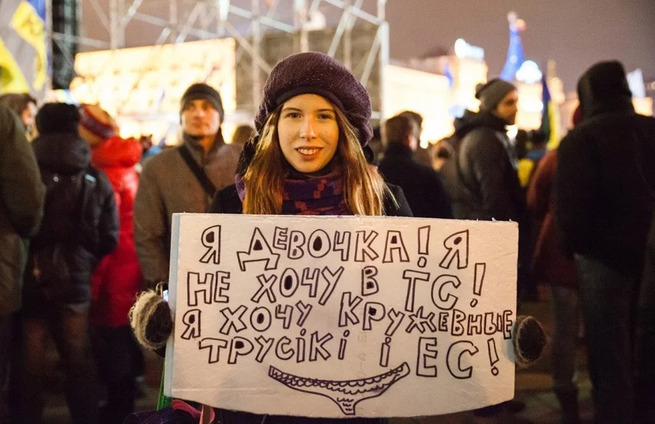 Я ДЕВОЧКА! Я
НЕ ХОЧУ В ТС!
Я ХОЧУ КРУЖЕВНЫЕ
ТРУСІКІ І ЕС!